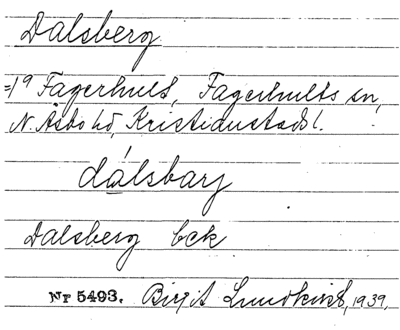 Dalsberg
=1⁹ Fagerhult, Fagerhults sn,
N. Åsbo hd, Kristianstads l.
dálsbarj
Dalsberg bek
Nr 5493. Birgit Lundkvist, 1939.